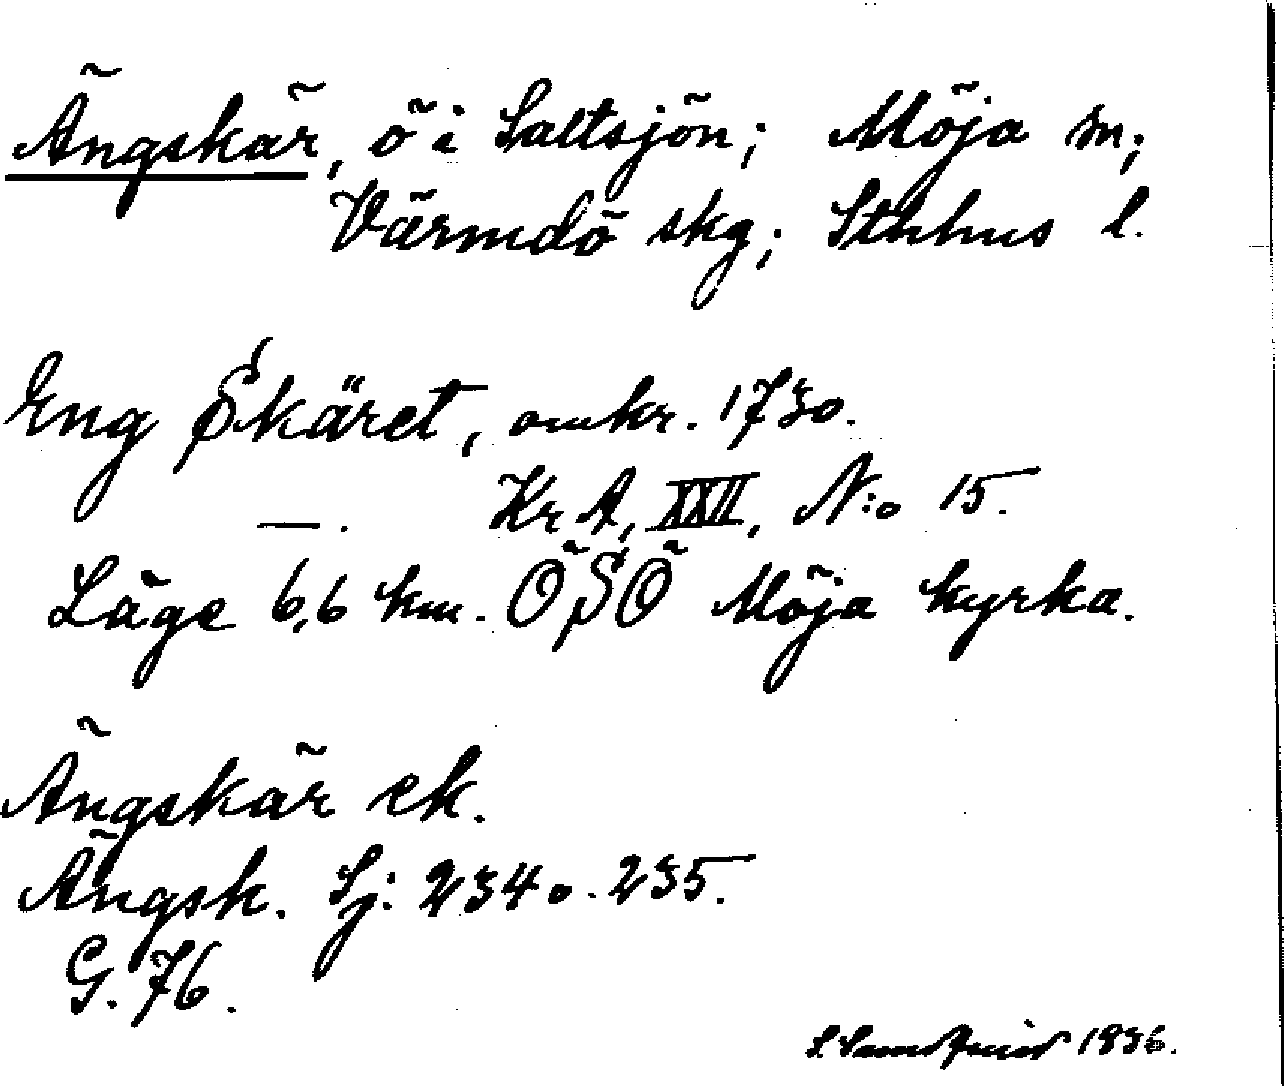 Ängskär, ö i Saltsjön; Möja sn;
Värmdö skg; Sthlms l.
Eng Skäret, omkr. 1730.
—. Kr A, XXII, N:o 15.
Läge 6,6 km. ÖSÖ Möja kyrka.
Ängskär ek.
Ängsk. Sj: 234 o. 235.
G. 76.
1936.